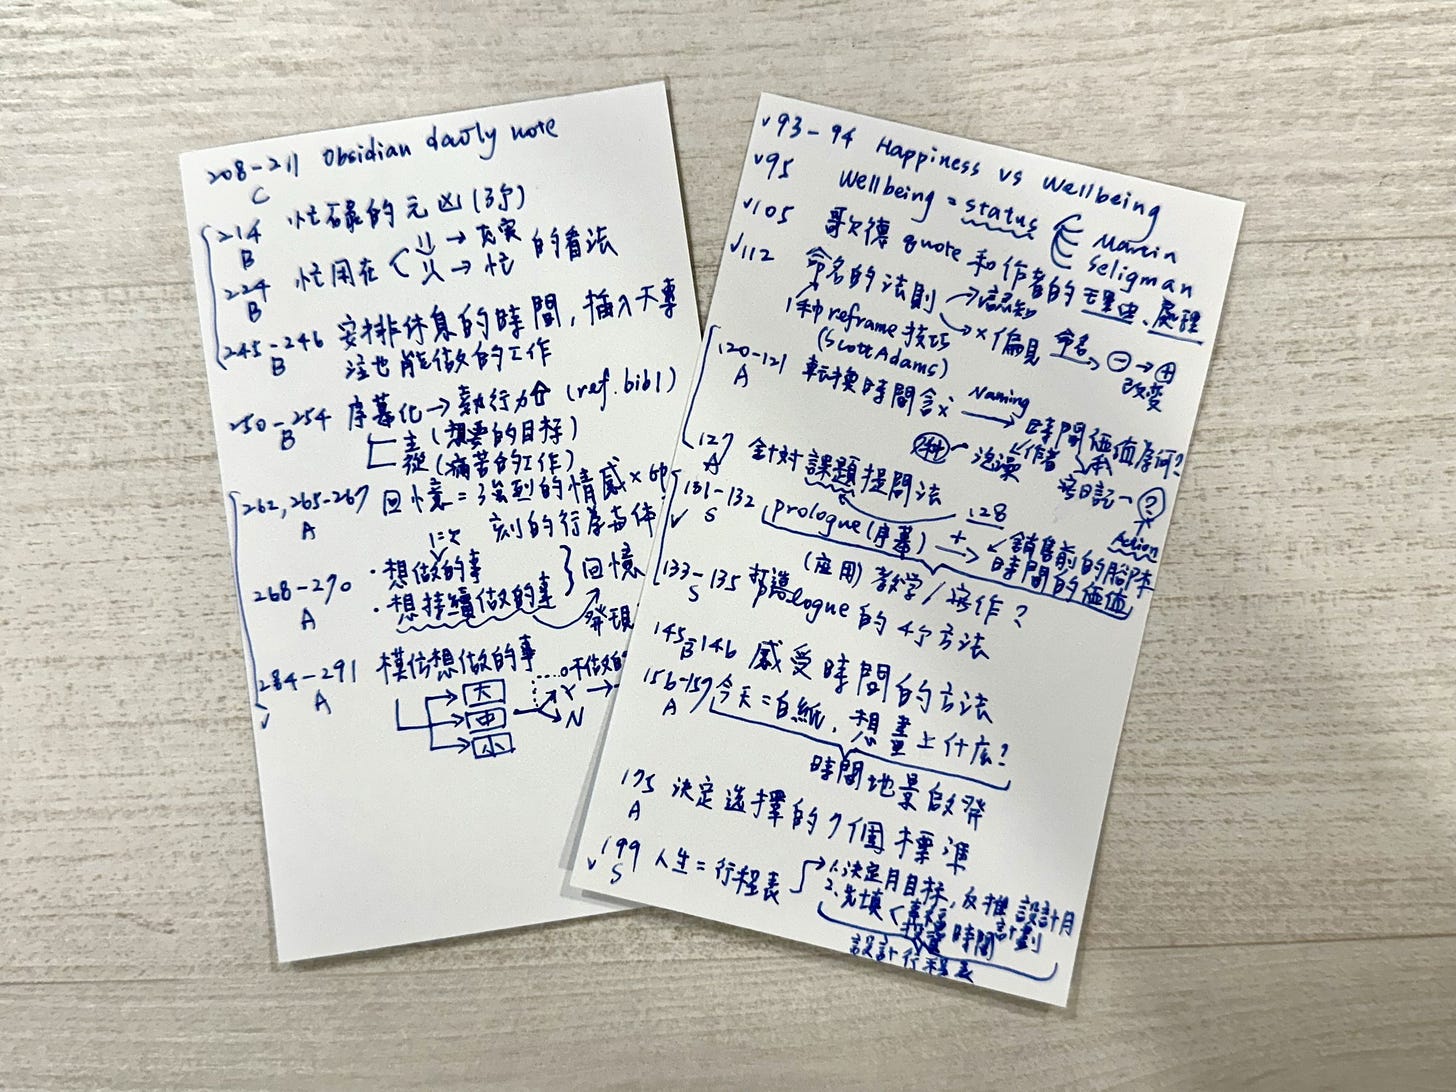 208-211 Obsidian daily note
C
214 忙碌的元凶(3个)
B
224 忙用在 < 以 → 充実 的看法
B 以 → 忙
245-246 安排休息的時間,插入不專
B 注也能做的工作
250-254 序幕化→執行力 (ref. bib1)
B 主 (想要的目標)
從 (痛苦的工作)
262, 265-267 回憶=強烈的情感×
A 刻的行
268-270 ·想做的事
A ·想持續做的事 } 回憶
發現
284-291 模仿想做的事
A 大 不做
中 Y →
小 N
v93-94 Happiness vs Wellbeing
v95 Wellbeing = status Martin Seligman
v105 歌德 quote 和作者的理由、處理
v112 命名的法則 → 認知
→ × 偏見 命名 ⊖→⊕
改變
1種 reframe 技巧
(Scott Adams)
120-121 轉換時間 Naming 時間価值
A 作者
泡澡 寫日記 → ?
Action
127 針對課題提問法
A 128
131-132 prologue(序幕) + → 銷售前的
S 時間的価值
(应用) 教学/寫作?
133-135 打造 prologue 的 4个方法
S
145-146 感受時間的方法
B
156-157 今天=白紙,想畫上什么?
A
時間地景啟發
175 決定選擇的7個標準
A
v199 人生=行程表 1.決定月目標,反推設計月計劃
S 2.先填 <
時間
設計行程表